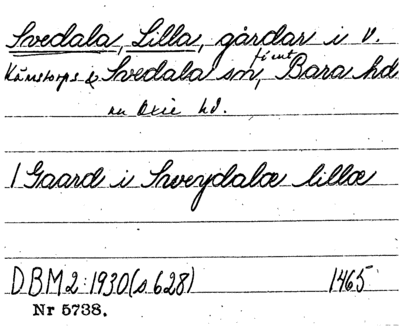 Svedala, Lilla, gårdar i V.
Kärrstorps & Svedala sn, Bara hd
nu Oxie hd.
1 Gaard i Sweydalæ lillæ
DBM 2:1930 (s 628) 1465
Nr 5738.